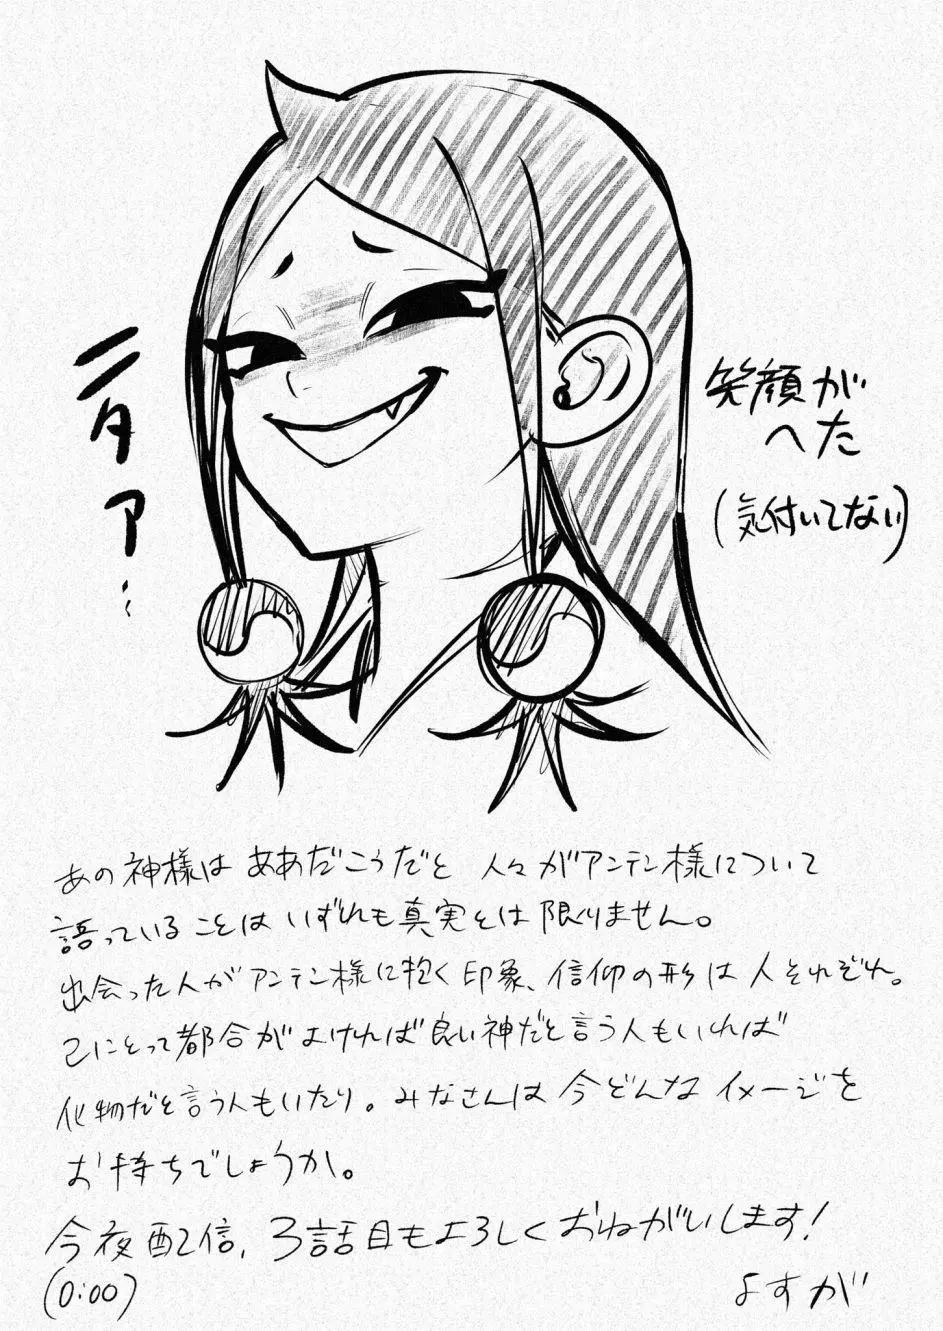 ニタァ…
笑顔が
へた
(気付いてない)
あの神様は ああだこうだと 人々がアンテン様について
語っていることは いずれも真実とは 限りません。
出会った人がアンテン様に抱く印象、信仰の形は 人それぞれ。
己にとって都合がよければ良い神だと言う人もいれば
化物だと言う人もいたり。みなさんは 今どんな イメージを
お持ちでしょうか。
今夜配信、3話目もよろしくおねがいします!
(0:00)
よすが